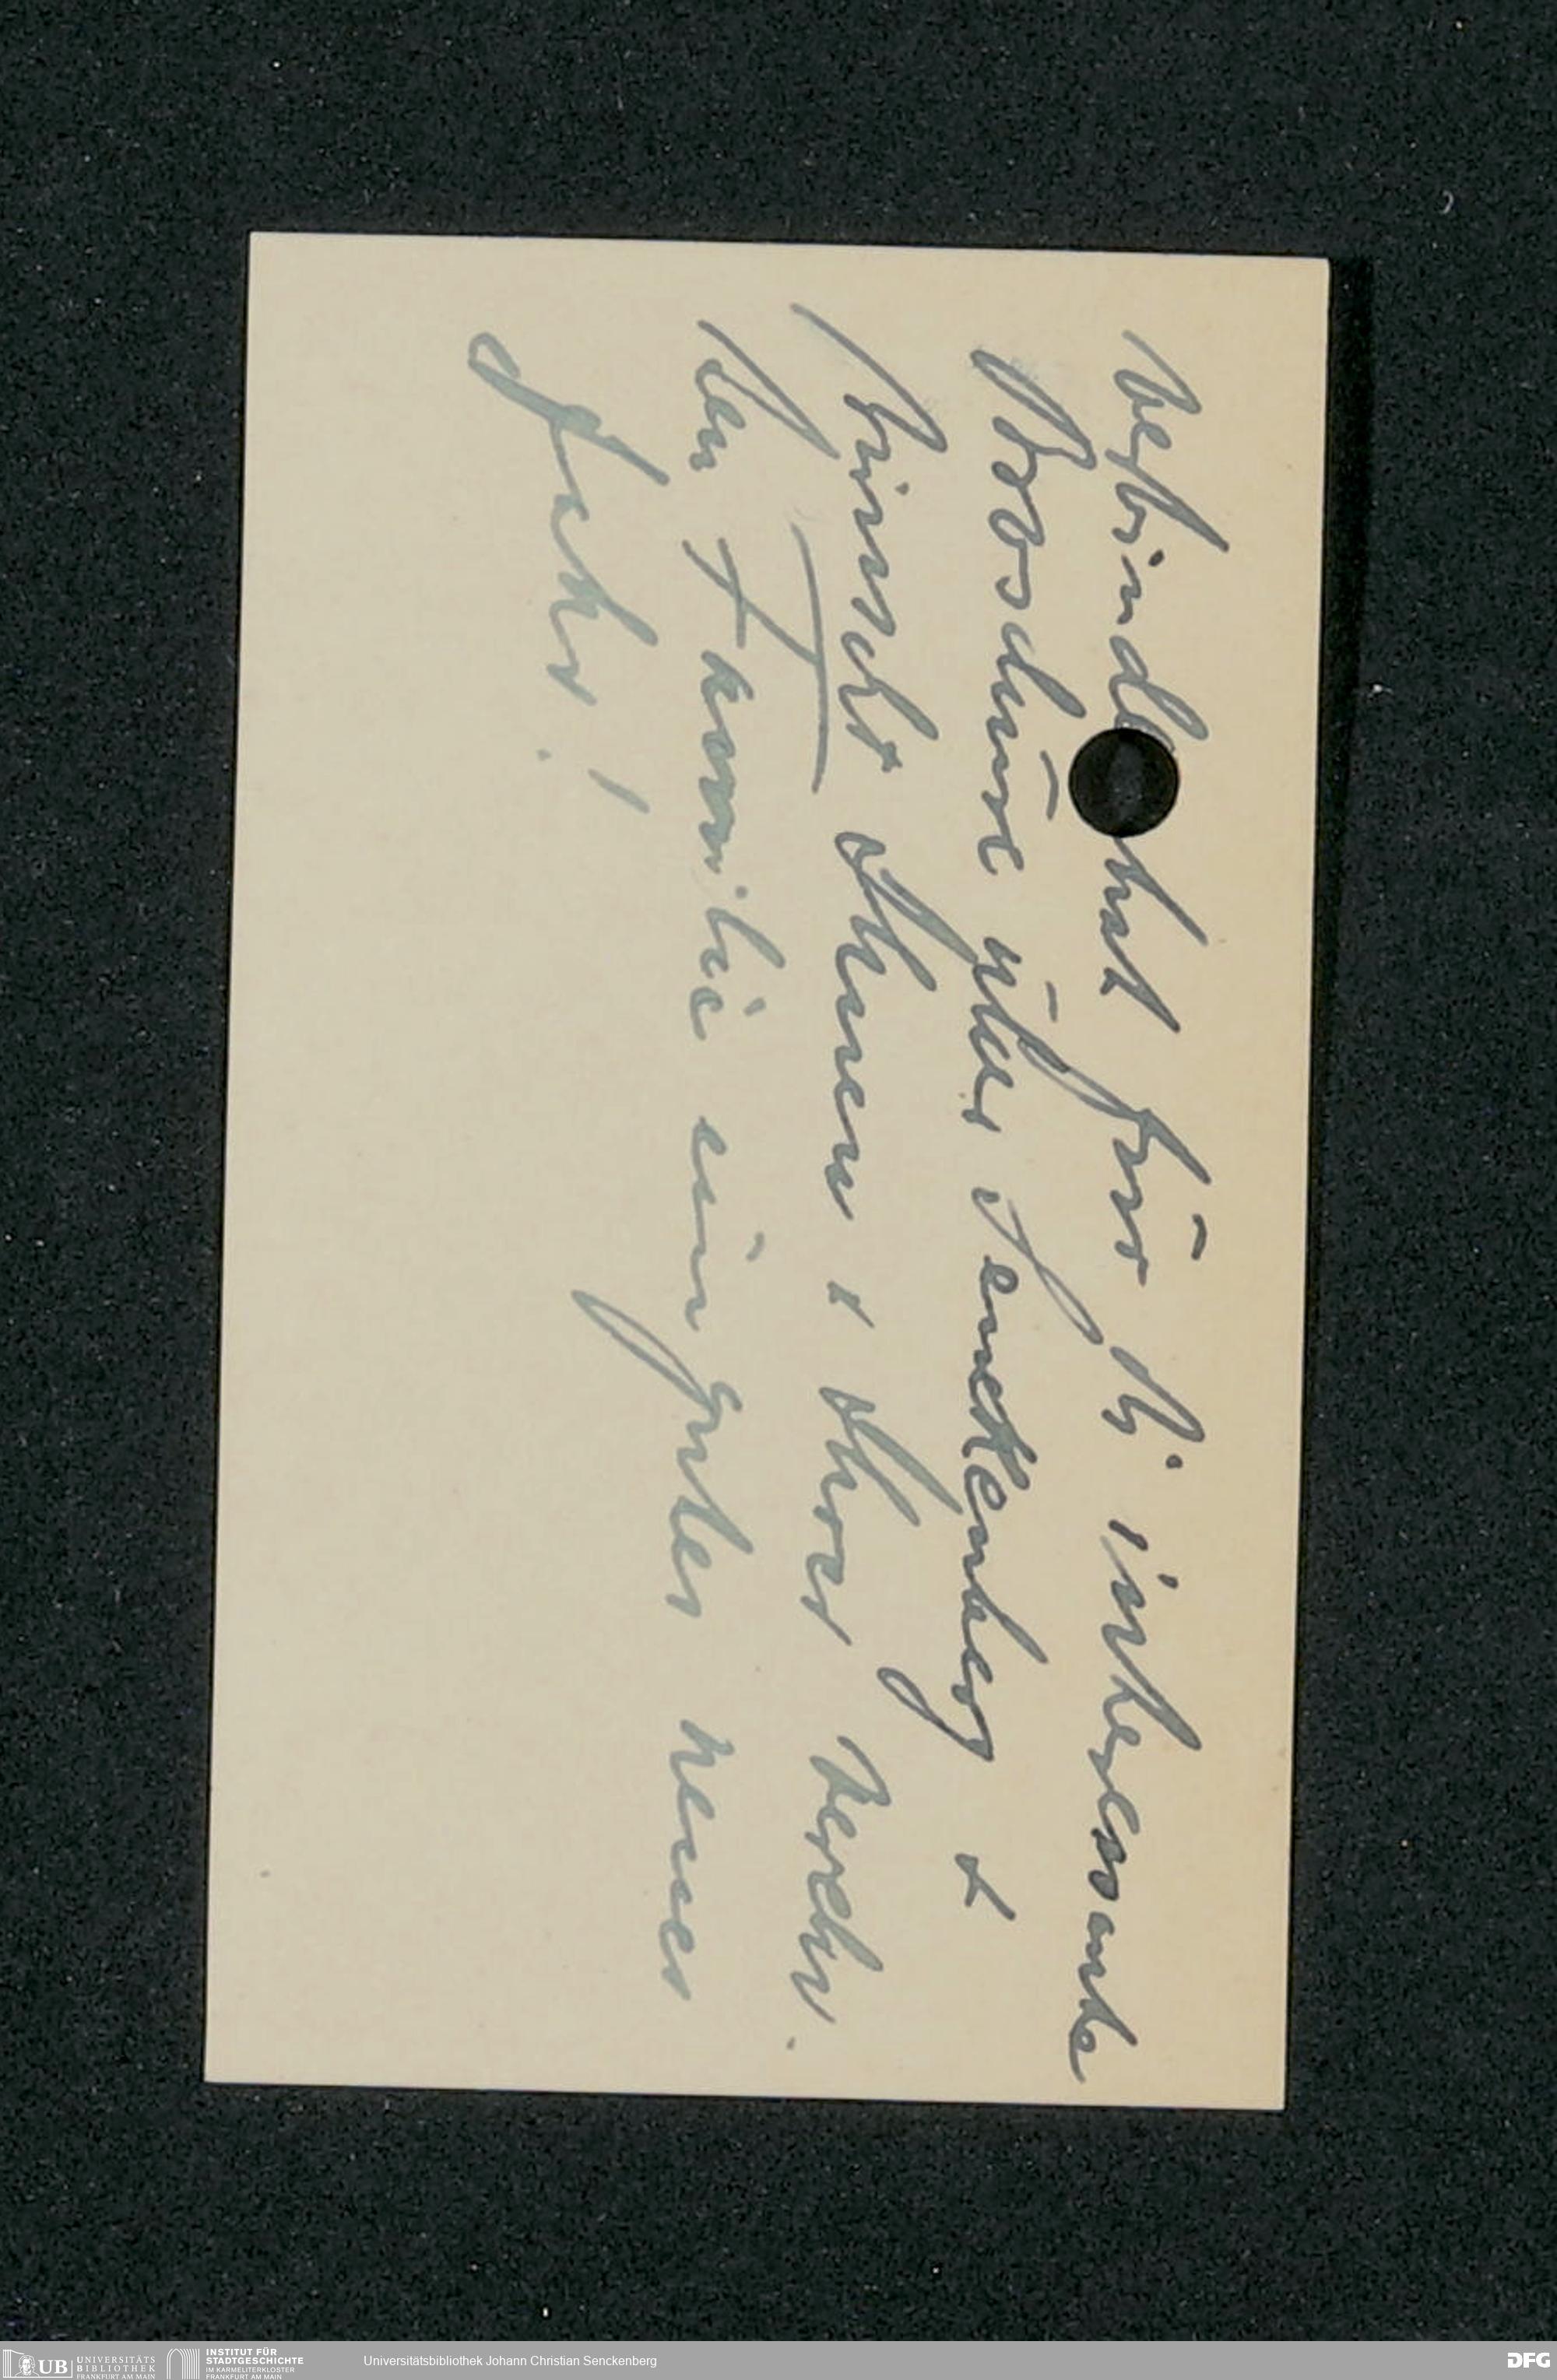 verbindl hat für die interessante
Broschüre über Senckenberg &
wünscht Ihnen & Ihrer verehr.
ten Familie ein gutes neues
Jahr!
UB UNIVERSITÄTS
BIBLIOTHEK
FRANKFURT AM MAIN
INSTITUT FÜR
STADTGESCHICHTE
IM KARMELITERKLOSTER
FRANKFURT AM MAIN
Universitätsbibliothek Johann Christian Senckenberg
DFG